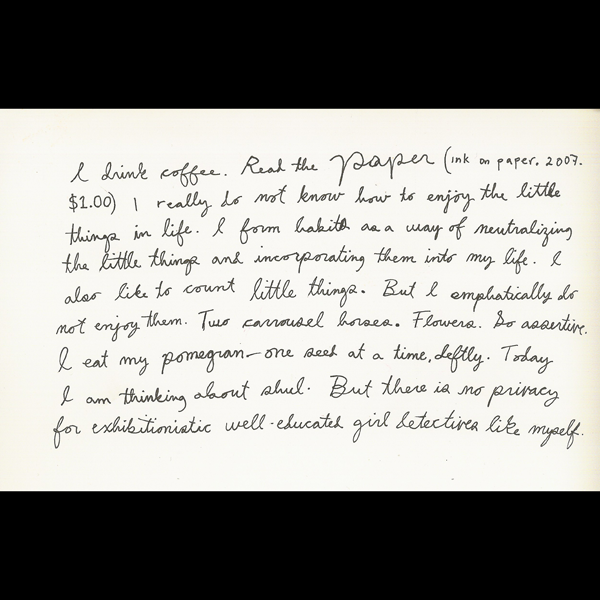 I drink coffee. Read the paper (ink on paper, 2007.
$1.00) I really do not know how to enjoy the little
things in life. I form habits as a way of neutralizing
the little things and incorporating them into my life. I
also like to count little things. But I emphatically do
not enjoy them. Two carrousel horses. Flowers. So assertive.
I eat my pomegran— one seed at a time, deftly. Today
I am thinking about shul. But there is no privacy
for exhibitionistic well-educated girl detectives like myself.